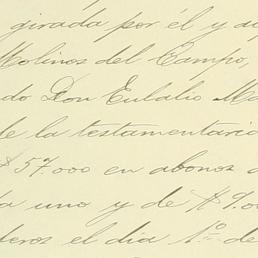 girada por él y a
Molinos del Campo,
do Don Eulalio M
de la testamentari
$57.000 en abonos
a uno y de $9.0
eros el dia 1º de